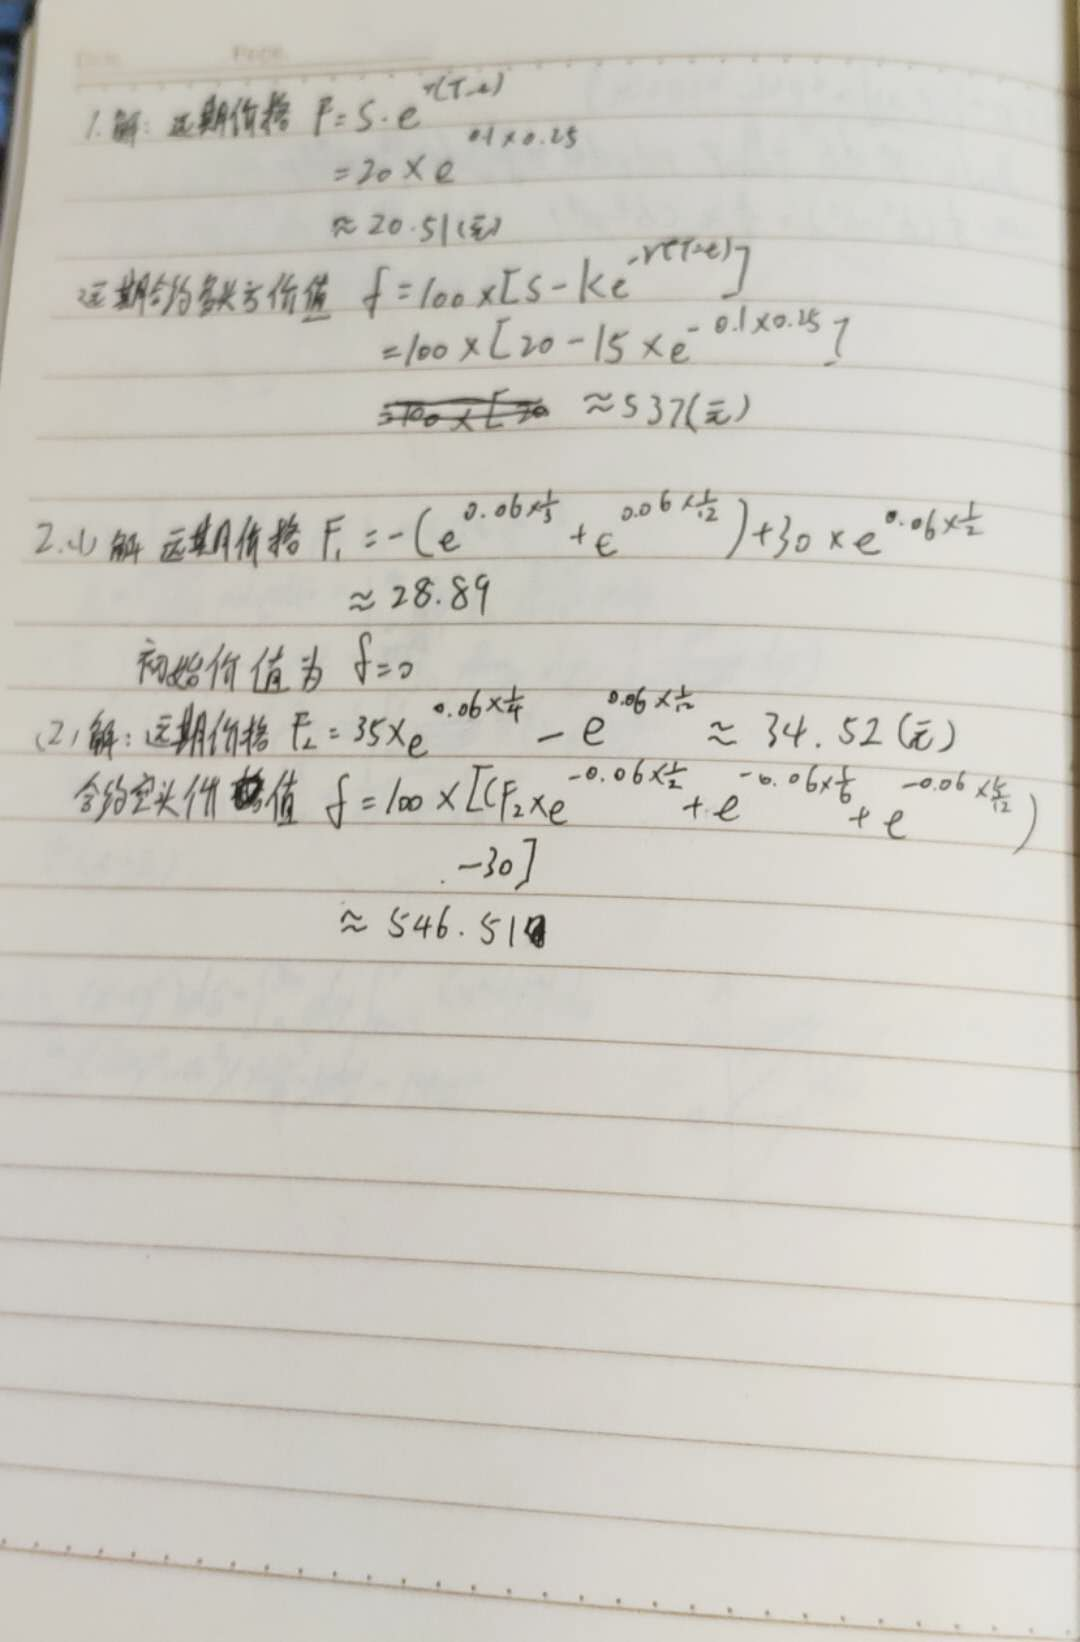 1.解：远期价格 F=S·e^{r(T-t)}
=20×e^{0.1×0.25}
≈20.51(元)
远期合约多头方价值 f=100×[S-Ke^{-r(T-t)}]
=100×[20-15×e^{-0.1×0.25}]
≈537(元)
2.(1)解 远期价格 F₁=-(e^{0.06×1/3}+e^{0.06×1/12})+30×e^{0.06×1/2}
≈28.89
初始价值为 f=0
(2)解：远期价格 F₂=35×e^{0.06×1/4}-e^{0.06×1/12}≈34.52(元)
合约空头价值 f=100×[(F₂×e^{-0.06×1/2}+e^{-0.06×1/6}+e^{-0.06×5/12})
-30]
≈546.51